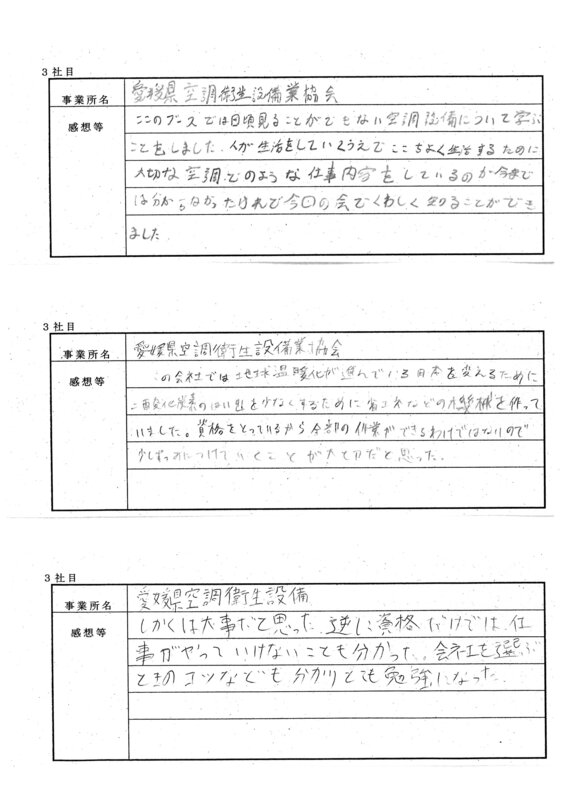 3社目
事業所名 愛媛県空調衛生設備業協会
感想等 ここのブースでは日頃見ることができない空調設備について学ぶ
ことをしました。人が生活をしていくうえでここちよく生活するために
大切な空調でのような仕事内容をしているのか今まで
は分からなかったけれど今回の会でくわしく知ることができ
ました。
3社目
事業所名 愛媛県空調衛生設備業協会
感想等 の会社では地球温暖化が進んでいる日本を変えるために
二酸化炭素のはい出を少なくするために省エネなどの機械を作って
いました。資格をとっているから全部の作業ができるわけではないので
少しずつみにつけていくことが大切だと思った。
3社目
事業所名 愛媛県空調衛生設備
感想等 しかくは大事だと思った。逆に資格だけでは、仕
事がやっていけないことも分かった。会社を選ぶ
ときのコツなども分かりとても勉強になった。